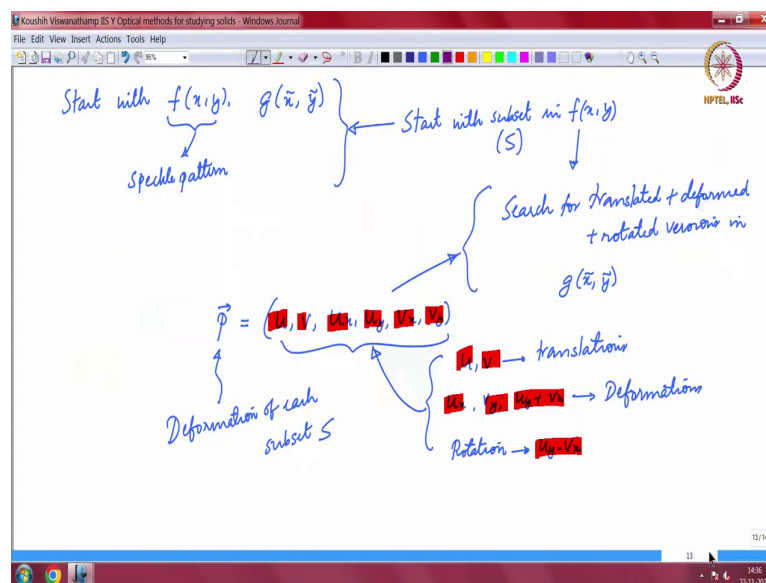 Koushih Viswanathamp IIS Y Optical methods for studying solids - Windows Journal
File Edit View Insert Actions Tools Help
96%
NPTEL, IISc
Start with f(x,y), g(x̃, ỹ)
Speckle pattern
Start with subset in f(x,y)
(S)
Search for translated + deformed
+ rotated versions in
g(x̃, ỹ)
P⃗ = (u, v, uₓ, u_y, vₓ, v_y)
Deformation of each
subset S
u, v → translations
uₓ, v_y, u_y + vₓ → Deformations
Rotation → u_y - vₓ
13/14
13
14:36